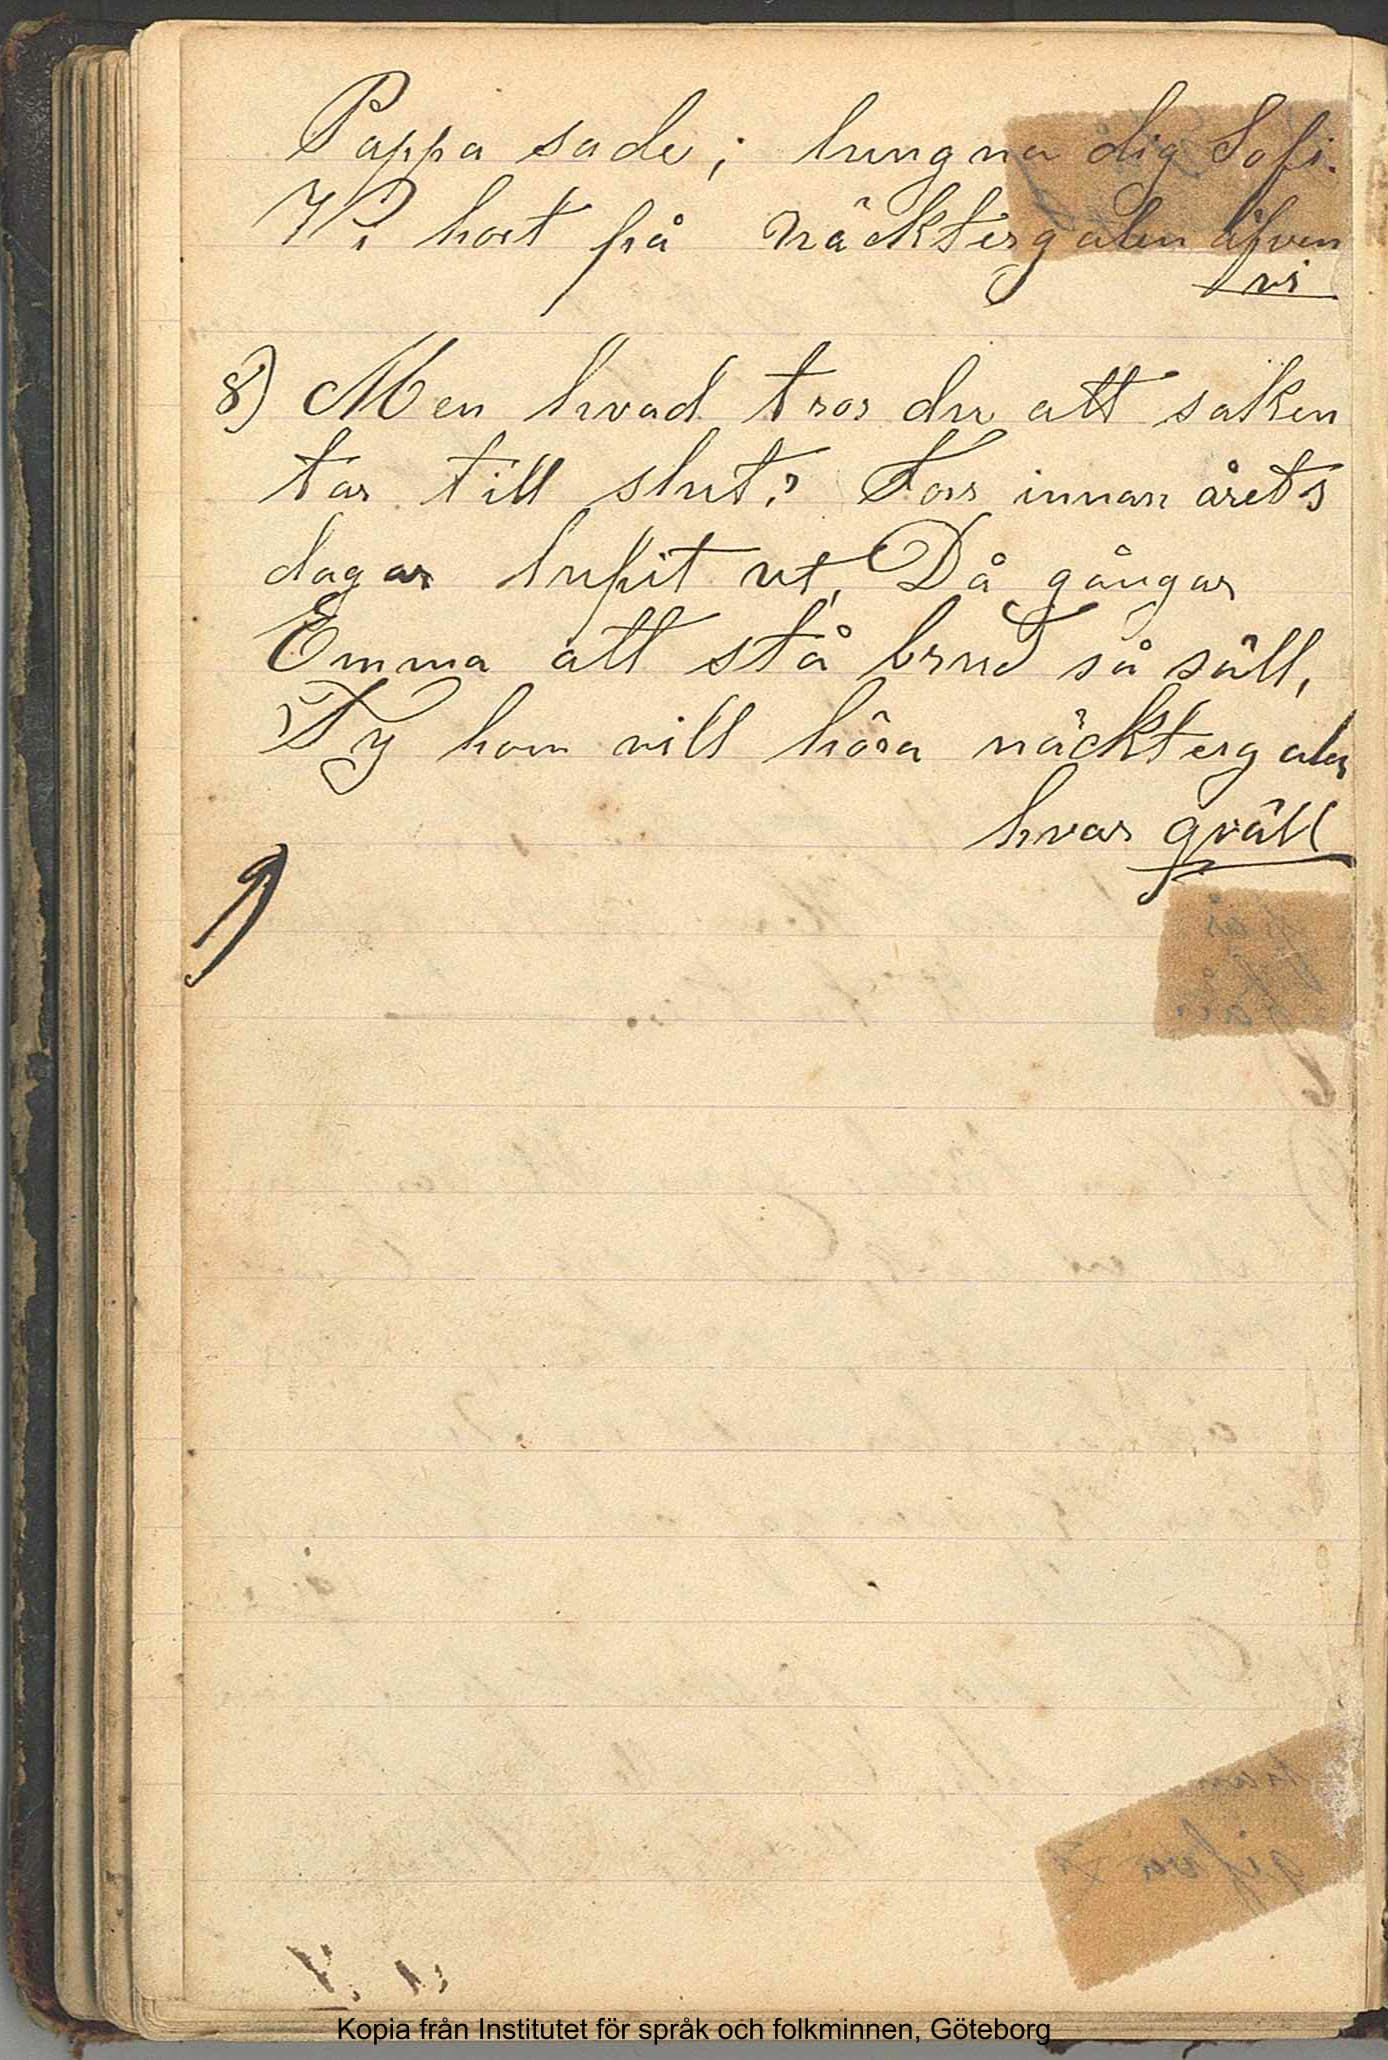 Pappa sade; lungna dig Sofi.
Vi hört på näcktergalen äfven
vi
8) Men hvad tror du att saken
tar till slut? Förr innan årets
dagar lupit ut, Då gångar
Emma att stå brud så säll,
Ty hon vill höra näcktergalen
hvar qväll
Kopia från Institutet för språk och folkminnen, Göteborg